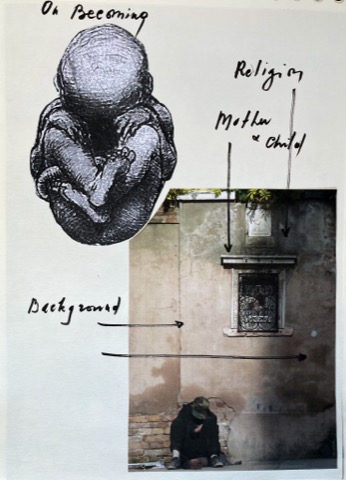 On Becoming
Religion
Mother
& Child
Background